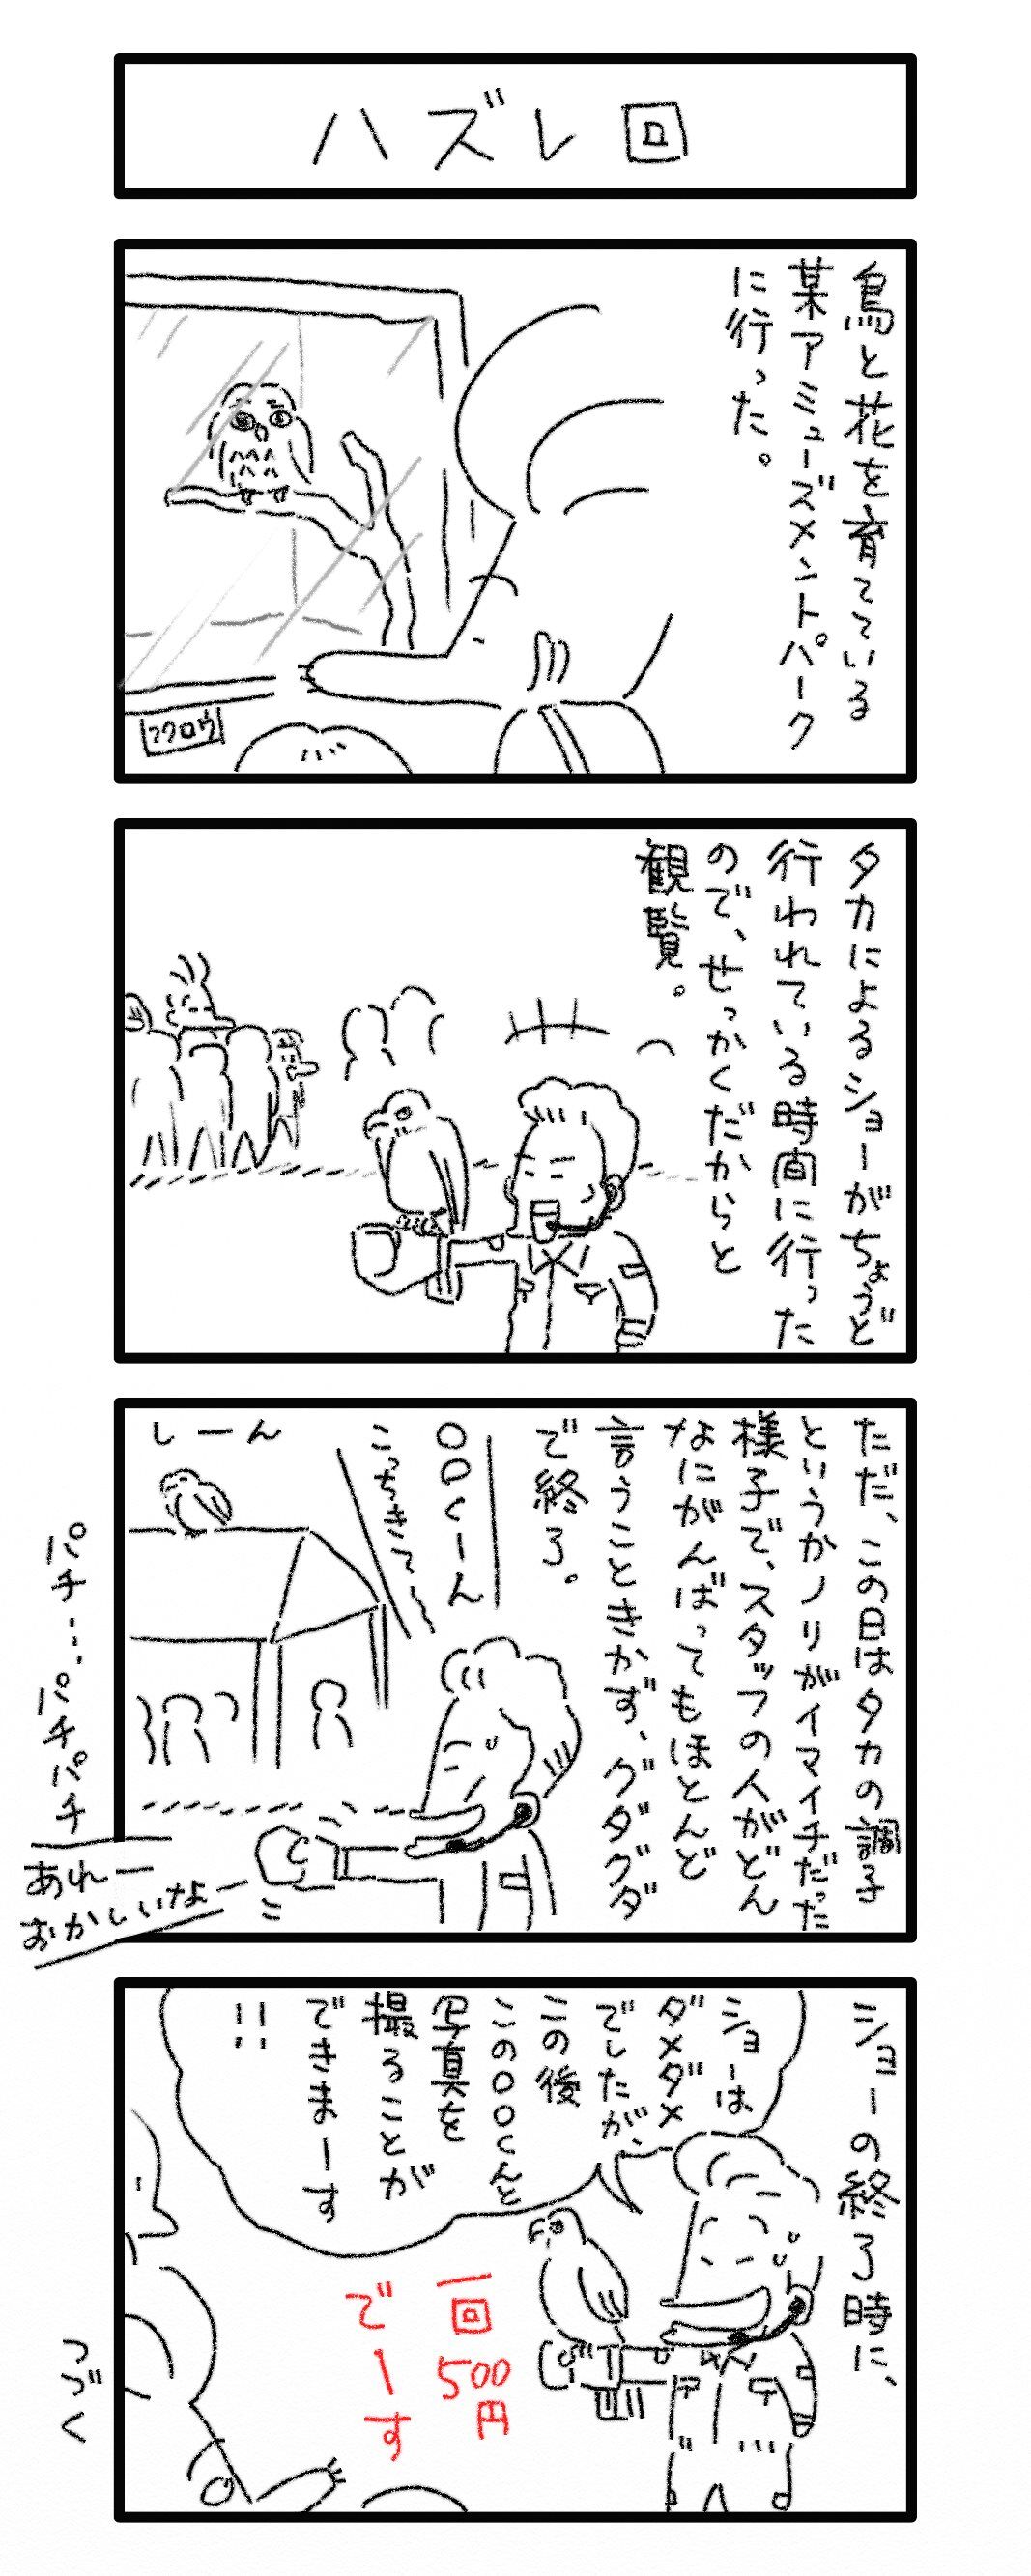 ハズレ回
鳥と花を育てている
某アミューズメントパーク
に行った。
フクロウ
タカによるショーがちょうど
行われている時間に行った
ので、せっかくだからと
観覧。
ただ、この日はタカの調子
というかノリがイマイチだった
様子で、スタッフの人がどん
なにがんばってもほとんど
言うこときかず、グダグダ
で終了。
〇〇くーん
こっちきて〜
しーん
パチ…パチパチ
あれー
おかしいなー
ショーの終了時に、
ショーは
ダメダメ
でしたが、
この後
この〇〇くんと
写真を
撮ることが
できまーす
!!
一回
500円
でーす
つづく